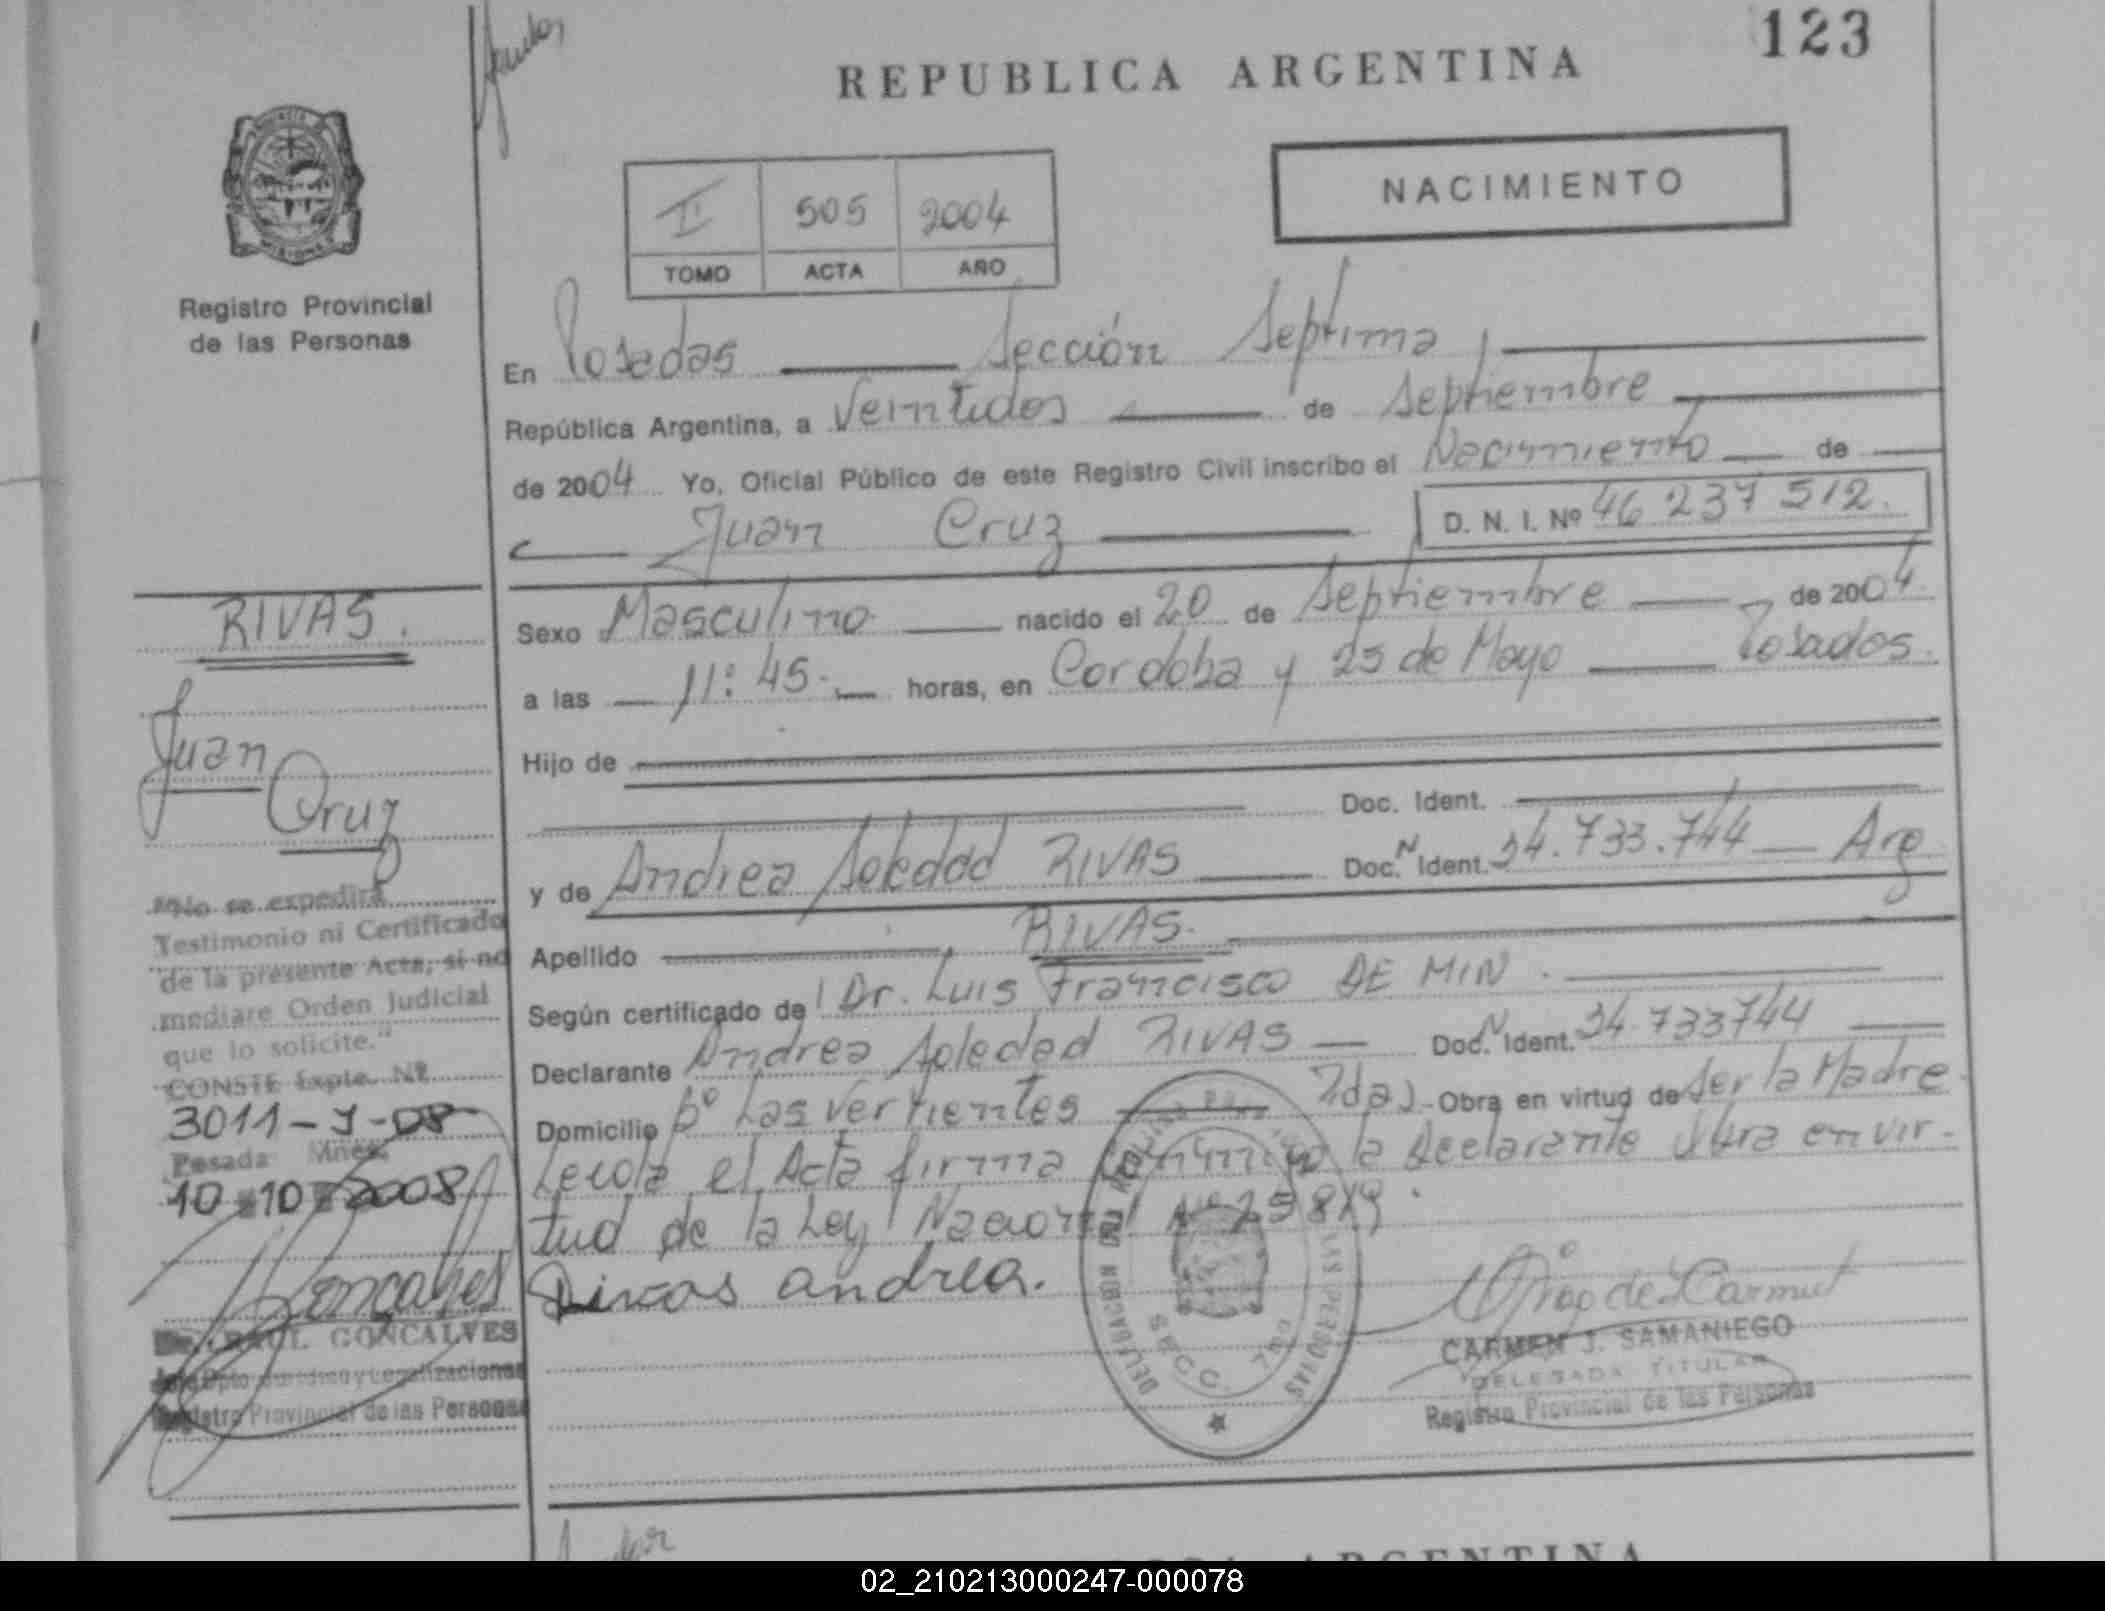 123
REPUBLICA ARGENTINA
NACIMIENTO
II 505 2004
TOMO ACTA AÑO
Registro Provincial
de las Personas
En Posadas Sección Septima
República Argentina, a Veintidos de Septiembre
de 2004 Yo, Oficial Público de este Registro Civil inscribo el Nacimiento de
Juan Cruz D. N. I. Nº 46 237 512.
RIVAS.
Juan
Cruz
Sexo Masculino nacido el 20 de Septiembre de 2004.
a las 11:45 horas, en Cordoba y 25 de Mayo Posadas.
Hijo de
Doc. Ident.
y de Andrea Soledad RIVAS Doc. N Ident. 34.733.744 Arg
Apellido RIVAS.
Según certificado de Dr. Luis Francisco DE MIN.
Declarante Andrea Soledad RIVAS Doc. N Ident. 34.733744
Domicilio Bº Las Vertientes Obra en virtud de Ser la Madre
Leida el Acta firma conmigo la Declarante Obra en vir-
tud de la Ley Nacional Nº 25819.
Rivas andrea.
"No se expedirá
Testimonio ni Certificado
de la presente Acta, si no
mediare Orden Judicial
que lo solicite."
CONSTE Expte. Nº
3011-J-08
Posadas Mnes.
10 10 2008
Goncalves
Dr. RAUL GONCALVES
Jefe Dpto Juridico y Legalizaciones
Registro Provincial de las Personas
SECC. 7ma
CARMEN J. SAMANIEGO
DELEGADA TITULAR
Registro Provincial de las Personas
ARGENTINA
02_210213000247-000078